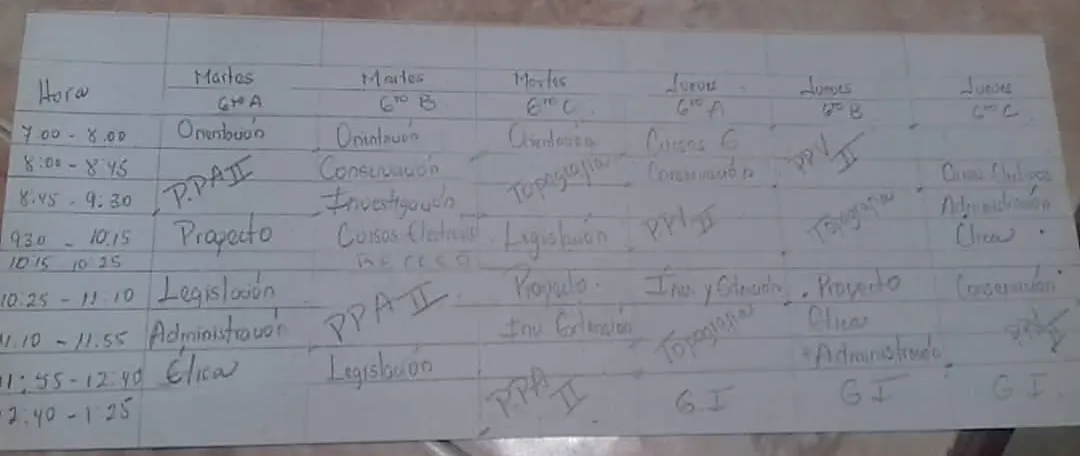 Hora Martes Martes Martes Jueves Jueves Jueves
6to A 6to B 6to C 6to A 6to B 6to C
7.00 - 8.00 Orientación Orientación Orientación
8:00 - 8:45 P.PA II Conservación Topografía Conservación PPV II
8:45 - 9:30 Investigación Topografía Administración
930 - 10:15 Proyecto Legislación PPV II Etica
10:15 10:25 RECESO
10:25 - 11:10 Legislación PPA II Proyecto Proyecto Conservación
11.10 - 11.55 Administración Inv Extensión Topografía Etica
11:55 - 12:40 Ética Legislación P.PA II Administración
2.40 - 1 25 G I G I G I